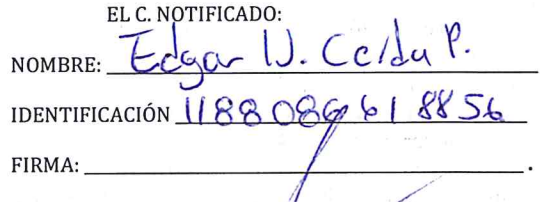 EL C. NOTIFICADO:
NOMBRE: Edgar
IDENTIFICACIÓN 1188086618856
FIRMA: